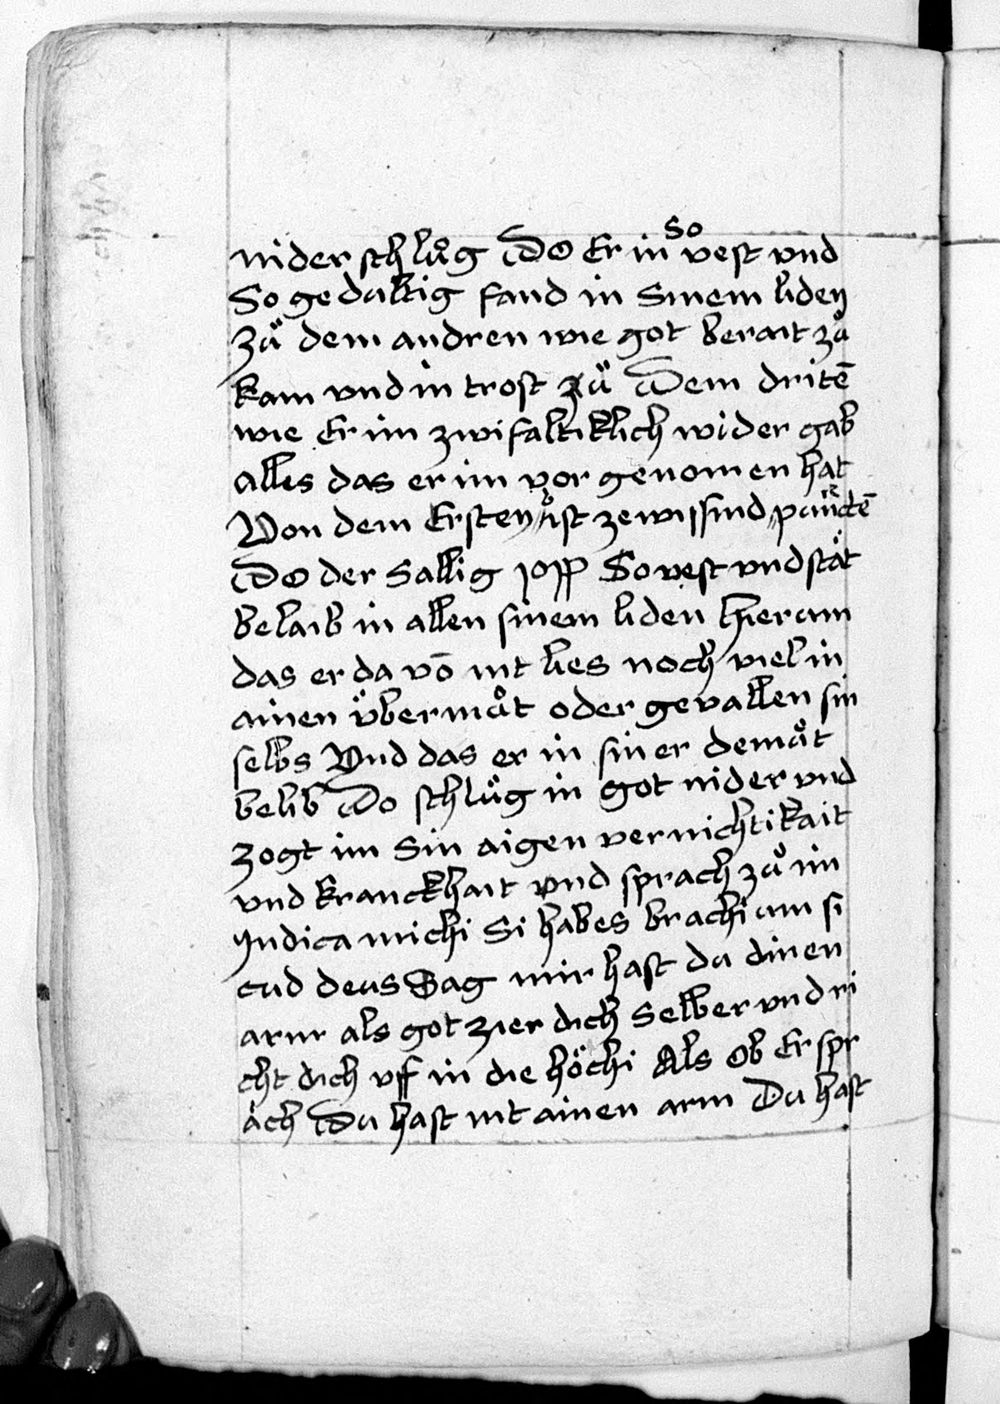 nider schlůg Do Er in So vest vnd
So gedultig fand in Sinem liden
Zů dem andren wie got berait zů
kam vnd in trost Zů Dem dritē
wie Er im zwifaltiklich wider gab
alles das er im vor genomen hat
Von dem Ersten ist ze wissind puncktē
Do der Sallig Jopp So vest vnd stät
belaib in allen sinem liden Hierum
das er da vō nit lies noch viel in
ainen übermůt oder gevallen sin
selbs Vnd das er in siner demůt
belib Do schlůg in got nider vnd
zogt im Sin aigen vernichtikait
vnd kranckhait vnd sprach zů im
Indica michi Si habes brachium si
cud deus Sag mir hast du dinen
arm als got zier dich Selber vnd ri
cht dich vff in die höchi Als Ob Er spr
äch Du hast nit ainen arm Du hast